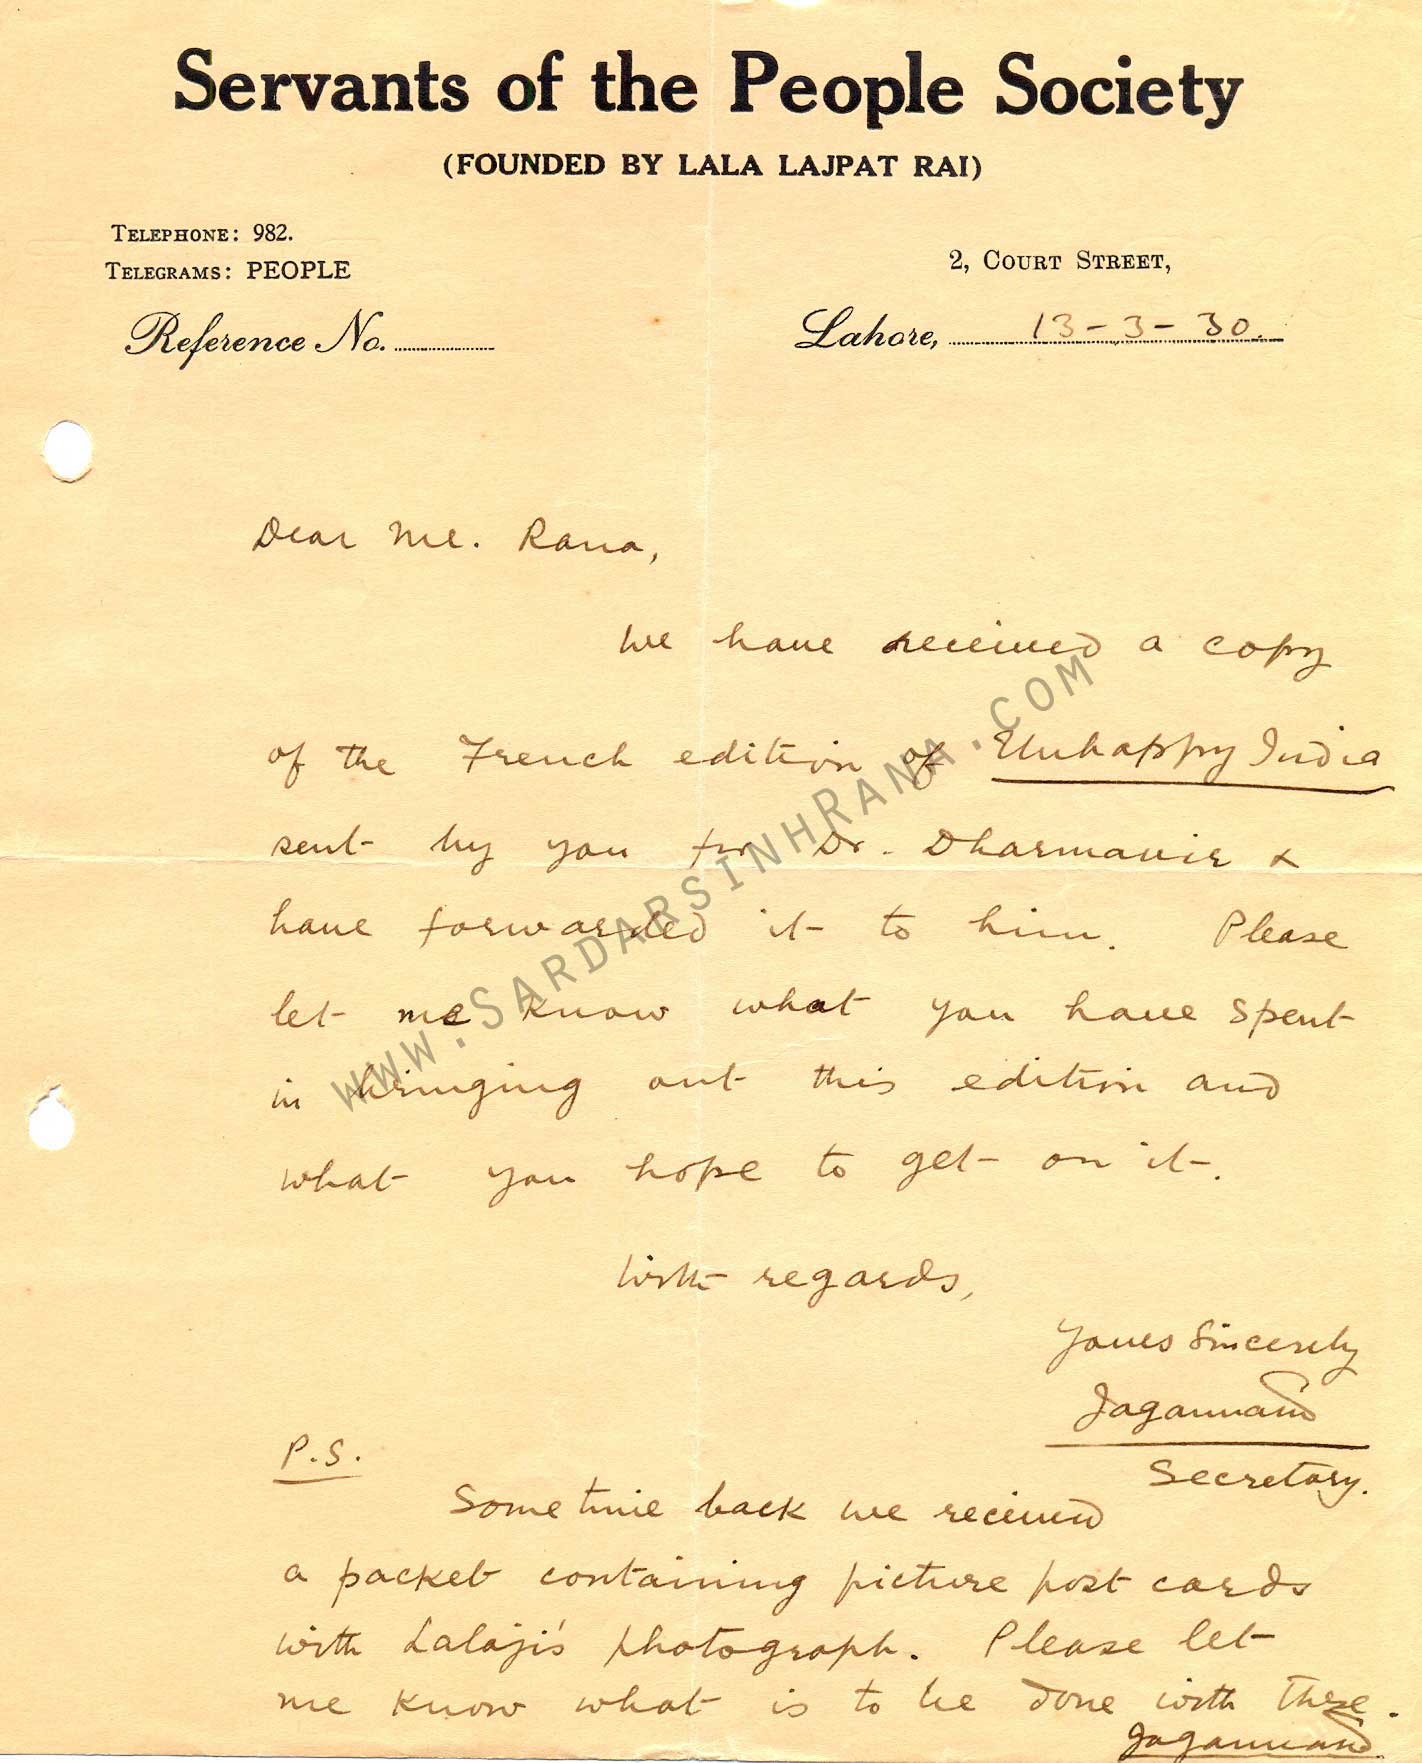 Servants of the People Society
(FOUNDED BY LALA LAJPAT RAI)
TELEPHONE: 982.
TELEGRAMS: PEOPLE
2, COURT STREET,
Reference No.
Lahore, 13-3-30.
Dear Mr. Rana,
We have received a copy
of the French edition of Unhappy India
sent by you for Dr. Dharmavir &
have forwarded it to him. Please
let me know what you have spent
in bringing out this edition and
what you hope to get on it.
With regards,
Yours Sincerely
Jagannand
Secretary.
P.S.
Some time back we received
a packet containing picture post cards
with Lalaji's photograph. Please let
me know what is to be done with these.
Jagannand
www.SARDARSINHRANA.COM